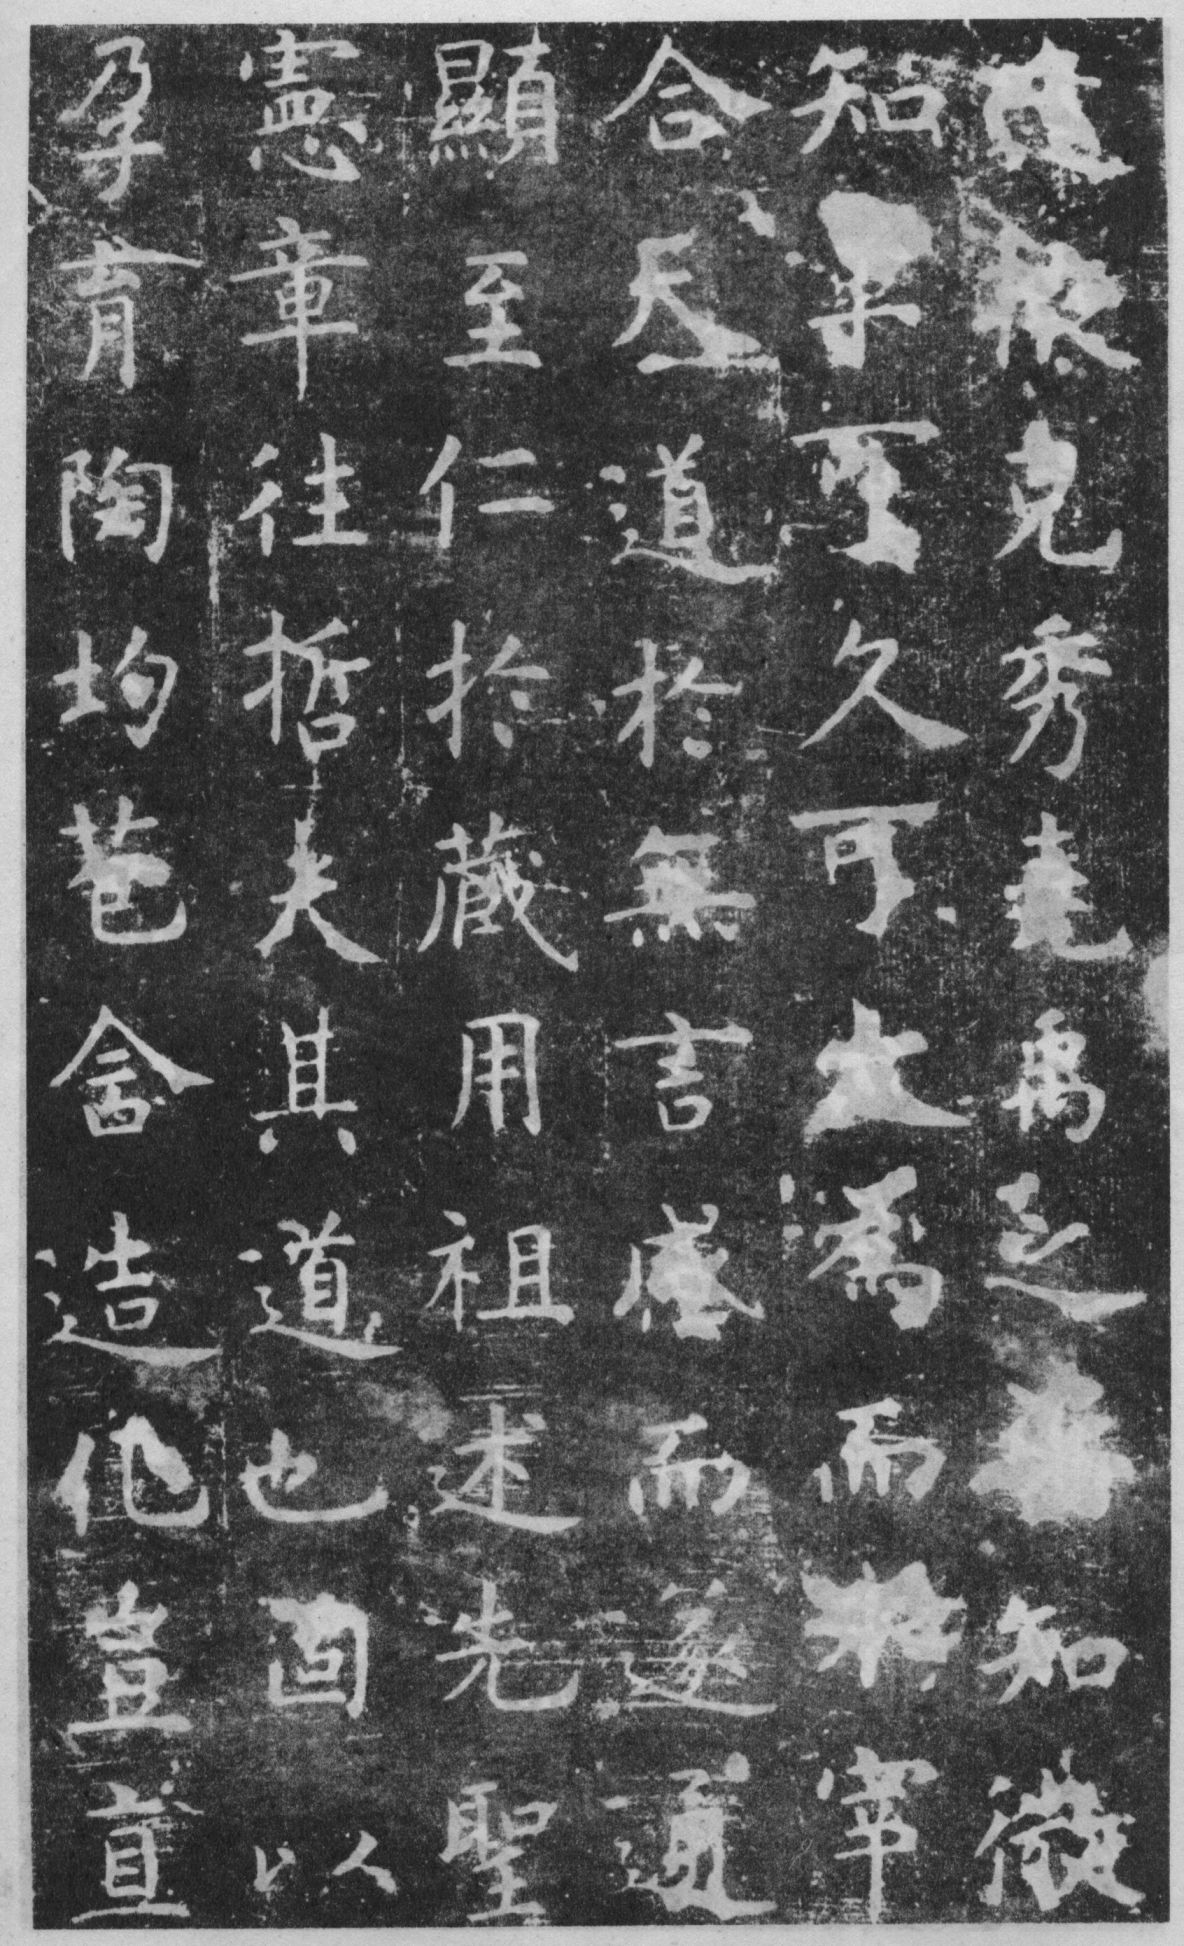 逢掖克秀堯禹之姿知微
知章可久可大為而不宰
合天道於無言感而遂通
顯至仁於藏用祖述先聖
憲章往哲夫其道也固以
孕育陶均苞含造化豈直